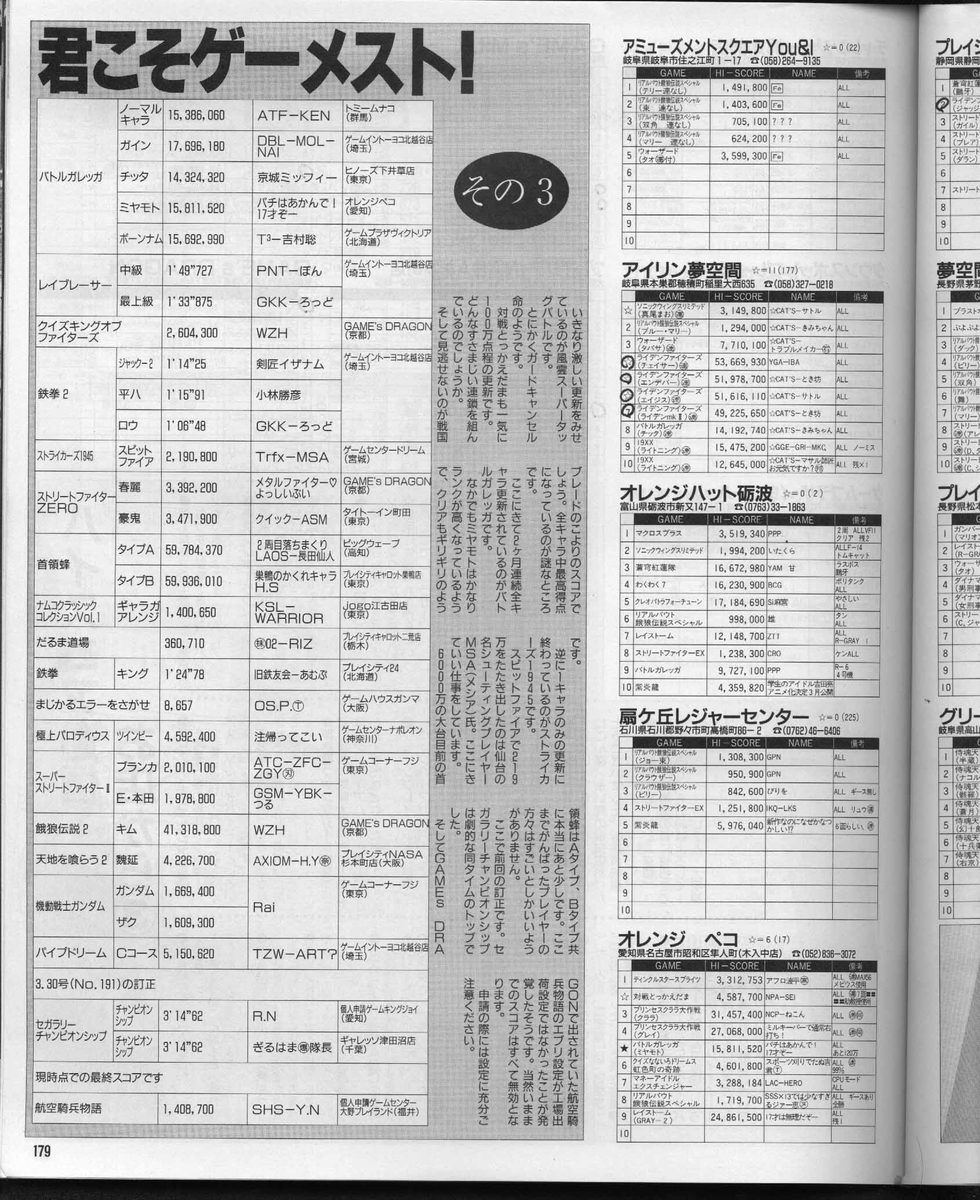 君こそゲーメスト!
その3
バトルガレッガ
ノーマルキャラ 15,386,060 ATF-KEN トミームナコ(群馬)
ガイン 17,696,180 DBL-MOL-NAI ゲームイントーヨコ北越谷店(埼玉)
チッタ 14,324,320 京城ミッフィー ヒノーズ下井草店(東京)
ミヤモト 15,811,520 バチはあかんで!17才ぞー オレンジペコ(愛知)
ボーンナム 15,692,990 T³-吉村聡 ゲームプラザヴィクトリア(北海道)
レイブレーサー
中級 1'49"727 PNT-ぽん ゲームイントーヨコ北越谷店(埼玉)
最上級 1'33"875 GKK-ろっど
クイズキングオブファイターズ 2,604,300 WZH GAME's DRAGON(京都)
鉄拳2
ジャック-2 1'14"25 剣匠イザナム ゲームイントーヨコ北越谷店(埼玉)
平八 1'15"91 小林勝彦
ロウ 1'06"48 GKK-ろっど
ストライカーズ1945 スピットファイア 2,190,800 Trfx-MSA ゲームセンタードリーム(宮城)
ストリートファイターZERO
春麗 3,392,200 メタルファイター♡よっしいふい GAME's DRAGON(京都)
豪鬼 3,471,900 クイックーASM タイトーイン町田(東京)
首領蜂
タイプA 59,784,370 2周目落ちまくりLAOS-長田仙人 ビッグウェーブ(高知)
タイプB 59,936,010 巣鴨のかくれキャラH.S プレイシティキャロット巣鴨店(東京)
ナムコクラッシックコレクションVol.1 ギャラガアレンジ 1,400,650 KSL-WARRIOR Jogo江古田店(東京)
だるま道場 360,710 ㊑02-RIZ プレイシティキャロット二荒店(栃木)
鉄拳 キング 1'24"78 旧鉄友会-あむぶ プレイシティ24(北海道)
まじかるエラーをさがせ 8,657 OS.P.Ⓣ ゲームハウスガンマ(大阪)
極上パロディウス ツインビー 4,592,400 注帰ってこい ゲームセンターナポレオン(神奈川)
スーパーストリートファイターⅡ
ブランカ 2,010,100 ATC-ZFC-ZGY ゲームコーナーフジ(東京)
E・本田 1,978,800 GSM-YBK-つる
餓狼伝説2 キム 41,318,800 WZH GAME's DRAGON(京都)
天地を喰らう2 魏延 4,226,700 AXIOM-H.Y プレイシティNASA杉本町店(大阪)
機動戦士ガンダム
ガンダム 1,669,400 Rai ゲームコーナーフジ(東京)
ザク 1,609,300
パイプドリーム Cコース 5,150,620 TZW-ART? ゲームイントーヨコ北越谷店(埼玉)
3.30号(No.191)の訂正
セガラリーチャンピオンシップ
チャンピオンシップ 3'14"62 R.N 個人申請ゲームキングジョイ(愛知)
チャンピオンシップ 3'14"62 ぎるはま隊長 ギャレッソ津田沼店(千葉)
現時点での最終スコアです
航空騎兵物語 1,408,700 SHS-Y.N 個人申請ゲームセンター大野プレイランド(福井)
いきなり激しい更新をみせ
ているのが風雲スーパータッ
グバトルです。
とにかくガードキャンセル
命のようです。
対戦とっかえだまも一気に
100万点程の更新です。
どんなすさまじい連鎖を組ん
でいるのでしょうか。
そして見逃せないのが戦国
ブレードのこよりのスコアで
しょう。全キャラ中最高得点
になっているのが謎なところ
ここにきて2ヶ月連続全キ
ャラ更新されているのがバト
ルガレッガです。
なかでもミヤモトはかなり
ランクが高くなっているよう
で、クリアもギリギリのよう
です。
逆に1キャラのみの更新に
終わっているのがストライカ
ーズ1945です。
スピットファイアで219
万をたたき出したのは仙台の
名シューティングプレイヤー
MSA(メシア)氏。ここにき
ていい仕事をしています。
6000万の大台目前の首
領蜂はAタイプ、Bタイプ共
に本当にあと少しです。ここ
までがんばったプレイヤーの
方々はすごいとしかいいよう
がありません。
ここで前回の訂正です。セ
ガラリーチャンピオンシップ
は劇的な同タイムのトップで
した。
そしてGAMEs DRA
GONで出されていた航空騎
兵物語のエブリ設定が工場出
荷設定ではなかったことが発
覚したそうです。当然いまま
でのスコアはすべて無効とな
ります。
申請の際には設定に充分ご
注意ください。
179
アミューズメントスクエアYou&I ☆=0(22)
岐阜県岐阜市住之江町1-17 ☎(058)264-9135
GAME HI-SCORE NAME 備考
1 リアルバウト餓狼伝説スペシャル(テリー 連なし) 1,491,800 Fe ALL
2 リアルバウト餓狼伝説スペシャル(東 連なし) 1,403,600 Fe ALL
3 リアルバウト餓狼伝説スペシャル(双角 連なし) 705,100 ??? ALL
4 リアルバウト餓狼伝説スペシャル(マリー 連なし) 624,200 ??? ALL
5 ウォーザード(タオ付) 3,599,300 Fe ALL
6
7
8
9
10
アイリン夢空間 ☆=11(177)
岐阜県本巣郡穂積町稲里大西635 ☎(058)327-0218
GAME HI-SCORE NAME 備考
☆ ソニックウィングスリミテッド(真尾まお) 3,149,800 ☆CAT'S-サトル ALL
2 リアルバウト餓狼伝説スペシャル(ブルー・マリー) 1,294,000 ☆CAT'S-きみちゃん ALL
3 ウォーザード(タバサ) 7,710,100 ☆CAT'S-トラブルメイカー ALL
ライデンファイターズ(チェイサー) 53,669,930 YGA-IBA ALL
ライデンファイターズ(エンデバー) 51,978,700 ☆CAT'S-とき坊 ALL
ライデンファイターズ(エイジス) 51,616,110 ☆CAT'S-サトル ALL
ライデンファイターズ(ライデンmkⅡ) 49,225,650 ☆CAT'S-とき坊 ALL
8 バトルガレッガ(チック) 14,192,740 ☆CAT'S-きみちゃん ALL
9 19XX(ライトニング) 15,475,200 ☆GGE-GRI-MKC ALL ノーミス
10 19XX(ライトニング) 12,645,000 お元気ですか? ALL 残×1
オレンジハット砺波 ☆=0(2)
富山県砺波市新又147-1 ☎(0763)33-1863
GAME HI-SCORE NAME 備考
1 マクロスプラス 3,519,340 PPP 2周 ALLVF11 クリア 残2
2 ソニックウィングスリミテッド 1,994,200 いたくら ALLF-14 トムキャット
3 蒼穹紅蓮隊 16,672,980 YAM 甘 ラスボス 鵬牙
4 わくわく7 16,230,900 BCG ポリタンク ALL
5 クレオパトラフォーチューン 17,184,690 Si麻宮 やさしい ALL
6 リアルバウト餓狼伝説スペシャル 998,000 雄 タン ALL
7 レイストーム 12,148,700 ZTT ALL R-GRAY 1
8 ストリートファイターEX 1,238,300 CRO ケンALL
9 バトルガレッガ 9,727,100 PPP R-6 4号機
10 紫炎龍 4,359,820 学生のアイドル吉田亮 アニメ化決定3月公開
扇ケ丘レジャーセンター ☆=0(225)
石川県石川郡野々市町高橋町86-2 ☎(0762)46-6406
GAME HI-SCORE NAME 備考
1 リアルバウト餓狼伝説スペシャル(ジョー東) 1,308,300 GPN ALL
2 リアルバウト餓狼伝説スペシャル(クラウザー) 950,900 GPN ALL
3 リアルバウト餓狼伝説スペシャル(ビリー) 842,600 びりを ALL ギース無し
4 ストリートファイターEX 1,251,800 IKQ-LKS ALL リュウ
5 紫炎龍 5,976,040 新作なのになぜかなつかしい!? 6面らしい
6
7
8
9
10
オレンジ ペコ ☆=6(17)
愛知県名古屋市昭和区隼人町(木入中店) ☎(052)836-3072
GAME HI-SCORE NAME 備考
1 ティンクルスタースプライツ 3,312,753 アフロ波平 ALL メビウス使用
☆ 対戦とっかえだま 4,587,700 NPA-SEI ALL
3 プリンセスクララ大作戦(クララ) 31,457,400 NCP-ねこん ALL
4 プリンセスクララ大作戦(グレイ) 27,068,000 ミルキーバーで通常右打ち! ALL
★ バトルガレッガ(ミヤモト) 15,811,520 バチはあかんで!17才ぞー ALL あと120万
6 クイズなないろドリームス虹色町の奇跡 4,601,800 ALL 99%
7 マネーアイドルエクスチェンジャー 3,288,184 LAC-HERO CPUモード ALL
8 リアルバウト餓狼伝説スペシャル 1,719,700 ALL ギースあり 全勝
9 レイストーム(GRAY-2) 24,861,500 17才は無理だぞー ALL 残1
10